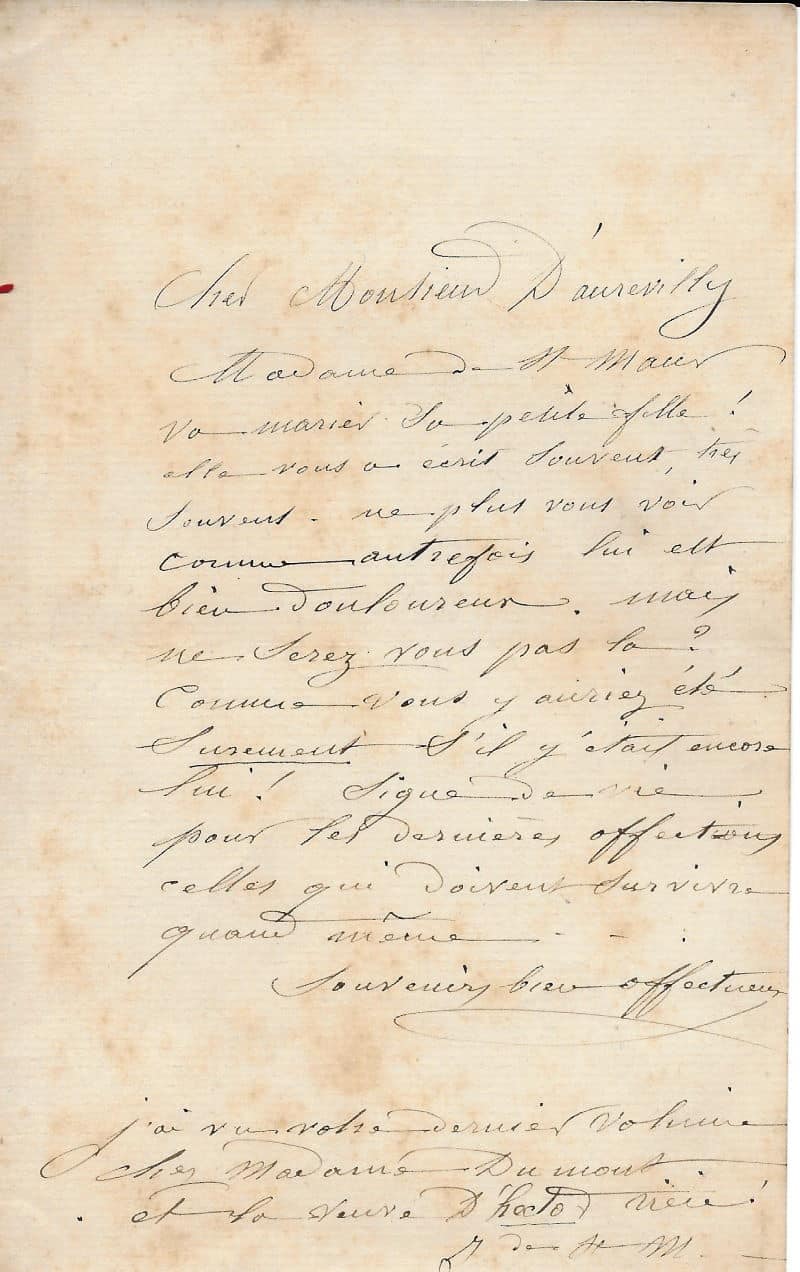 Cher Monsieur D'aurevilly
Madame de St Maur
va marier sa petite fille !
elle vous a écrit souvent, très
souvent - ne plus vous voir
comme autrefois lui est
bien douloureux. mais
ne serez vous pas là ?
Comme vous y auriez été
Surement s'il y était encore
lui ! Signe de vie
pour les dernières affections
celles qui doivent survivre
quand même - - .
Souvenirs bien affectueux
j'ai vu votre dernier volume
chez Madame Dumont
et la veuve D'hector
de St M.